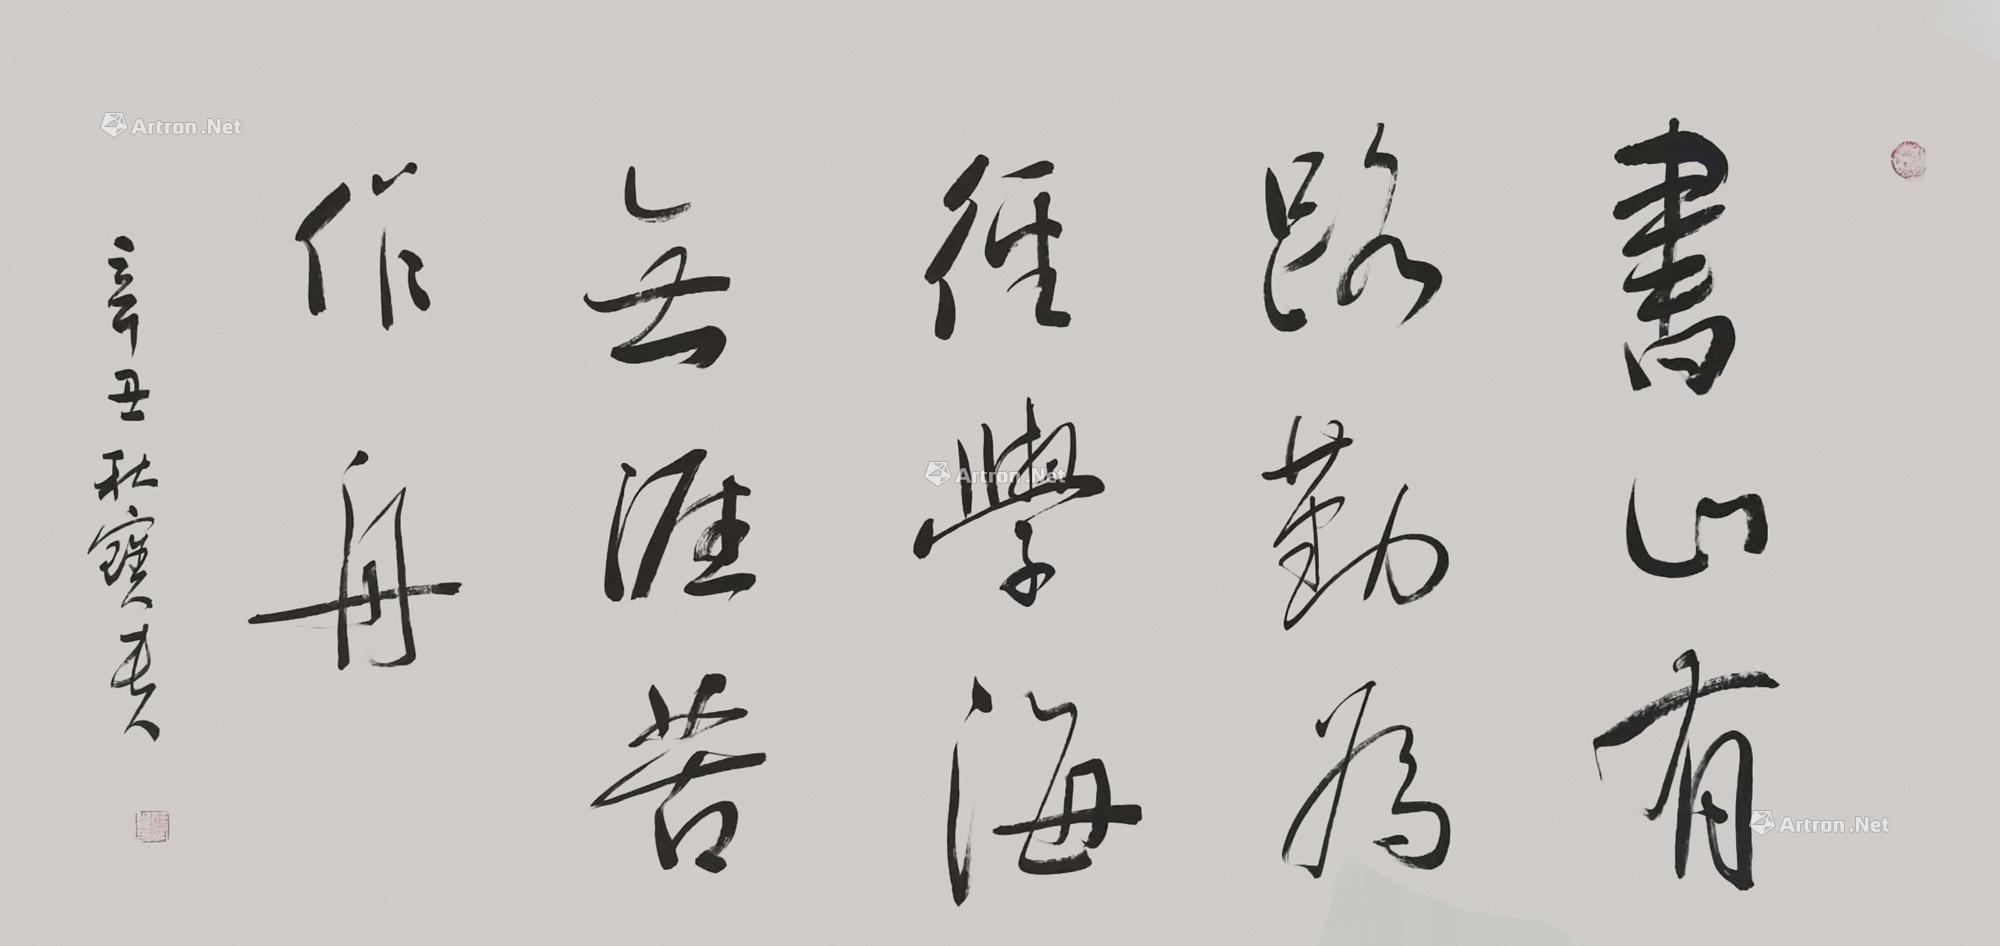 書山有
路勤為
徑學海
無涯苦
作舟
辛丑秋寶貴
Artron.Net
Artron.Net
Artron.Net